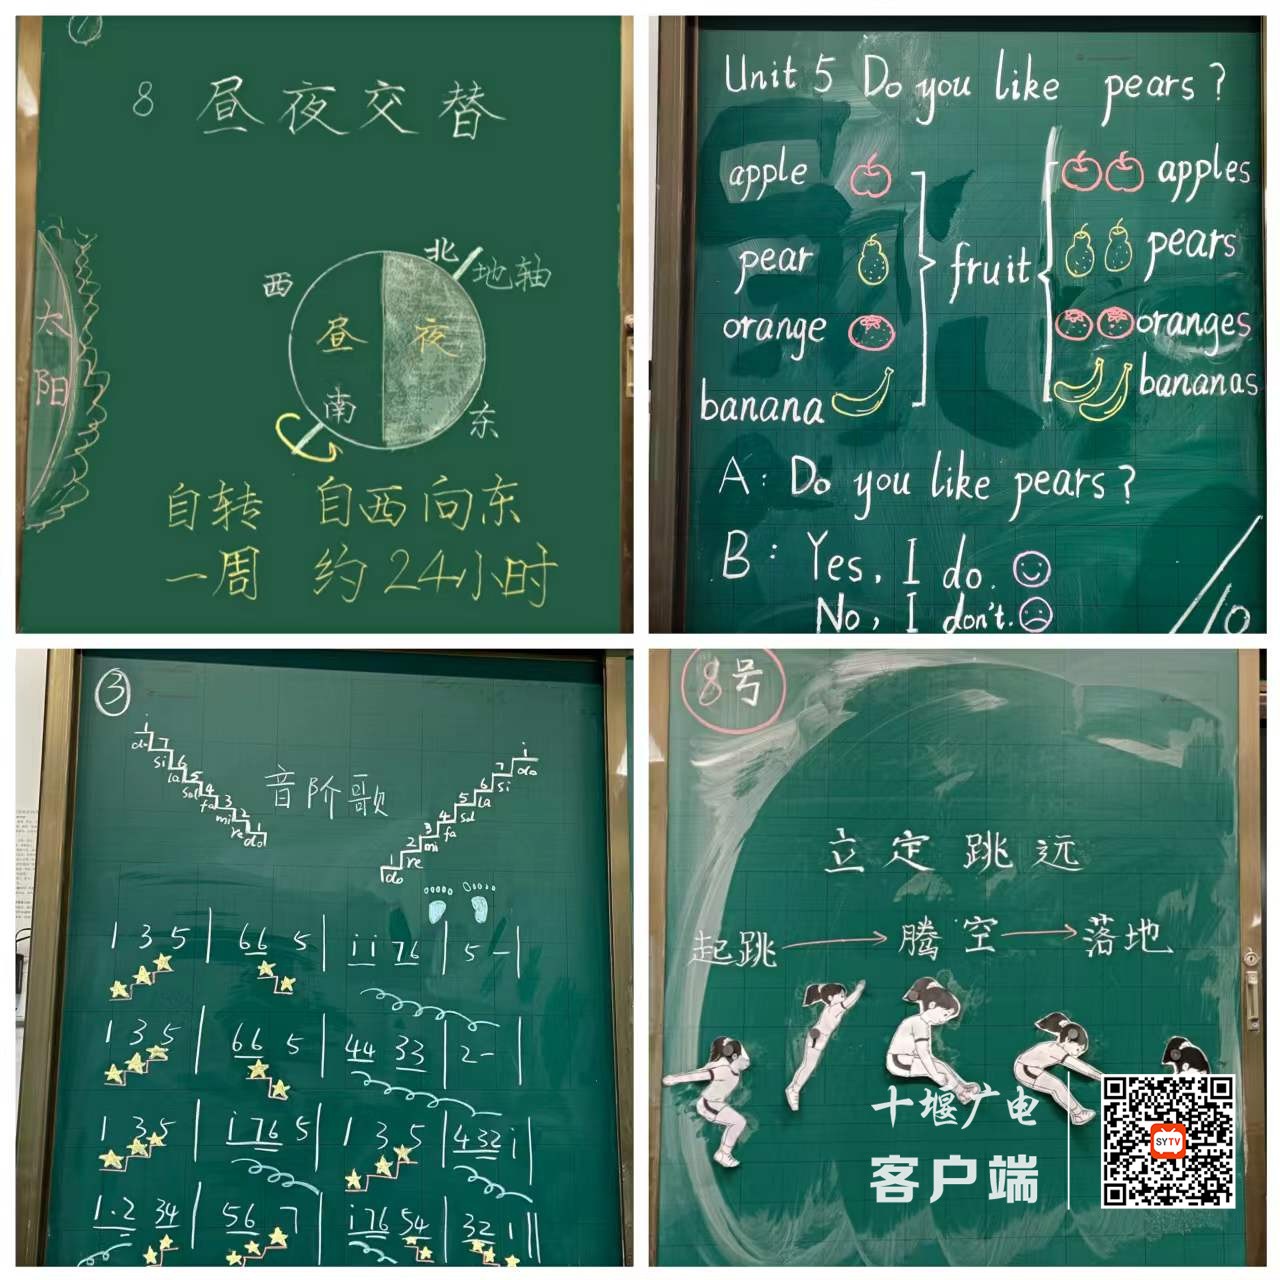 8 昼夜交替
北
西
地轴
太阳
昼 夜
南
东
自转 自西向东
一周 约24小时
Unit 5 Do you like pears?
apple
apples
pear
fruit
pears
orange
oranges
banana
bananas
A: Do you like pears?
B: Yes, I do.
No, I don't.
10
③
音阶歌
i 7 6 5 4 3 2 1
do si la sol fa mi re do
1 2 3 4 5 6 7 i
do re mi fa sol la si do
1 3 5 | 66 5 | i i 76 | 5 - |
1 3 5 | 66 5 | 44 33 | 2 - |
1 3 5 | i 76 5 | 1 3 5 | 432 i |
1·2 34 | 56 7 | i76 54 | 32 1 ||
8号
立定跳远
起跳 → 腾空 → 落地
十堰广电
客户端
SYTV